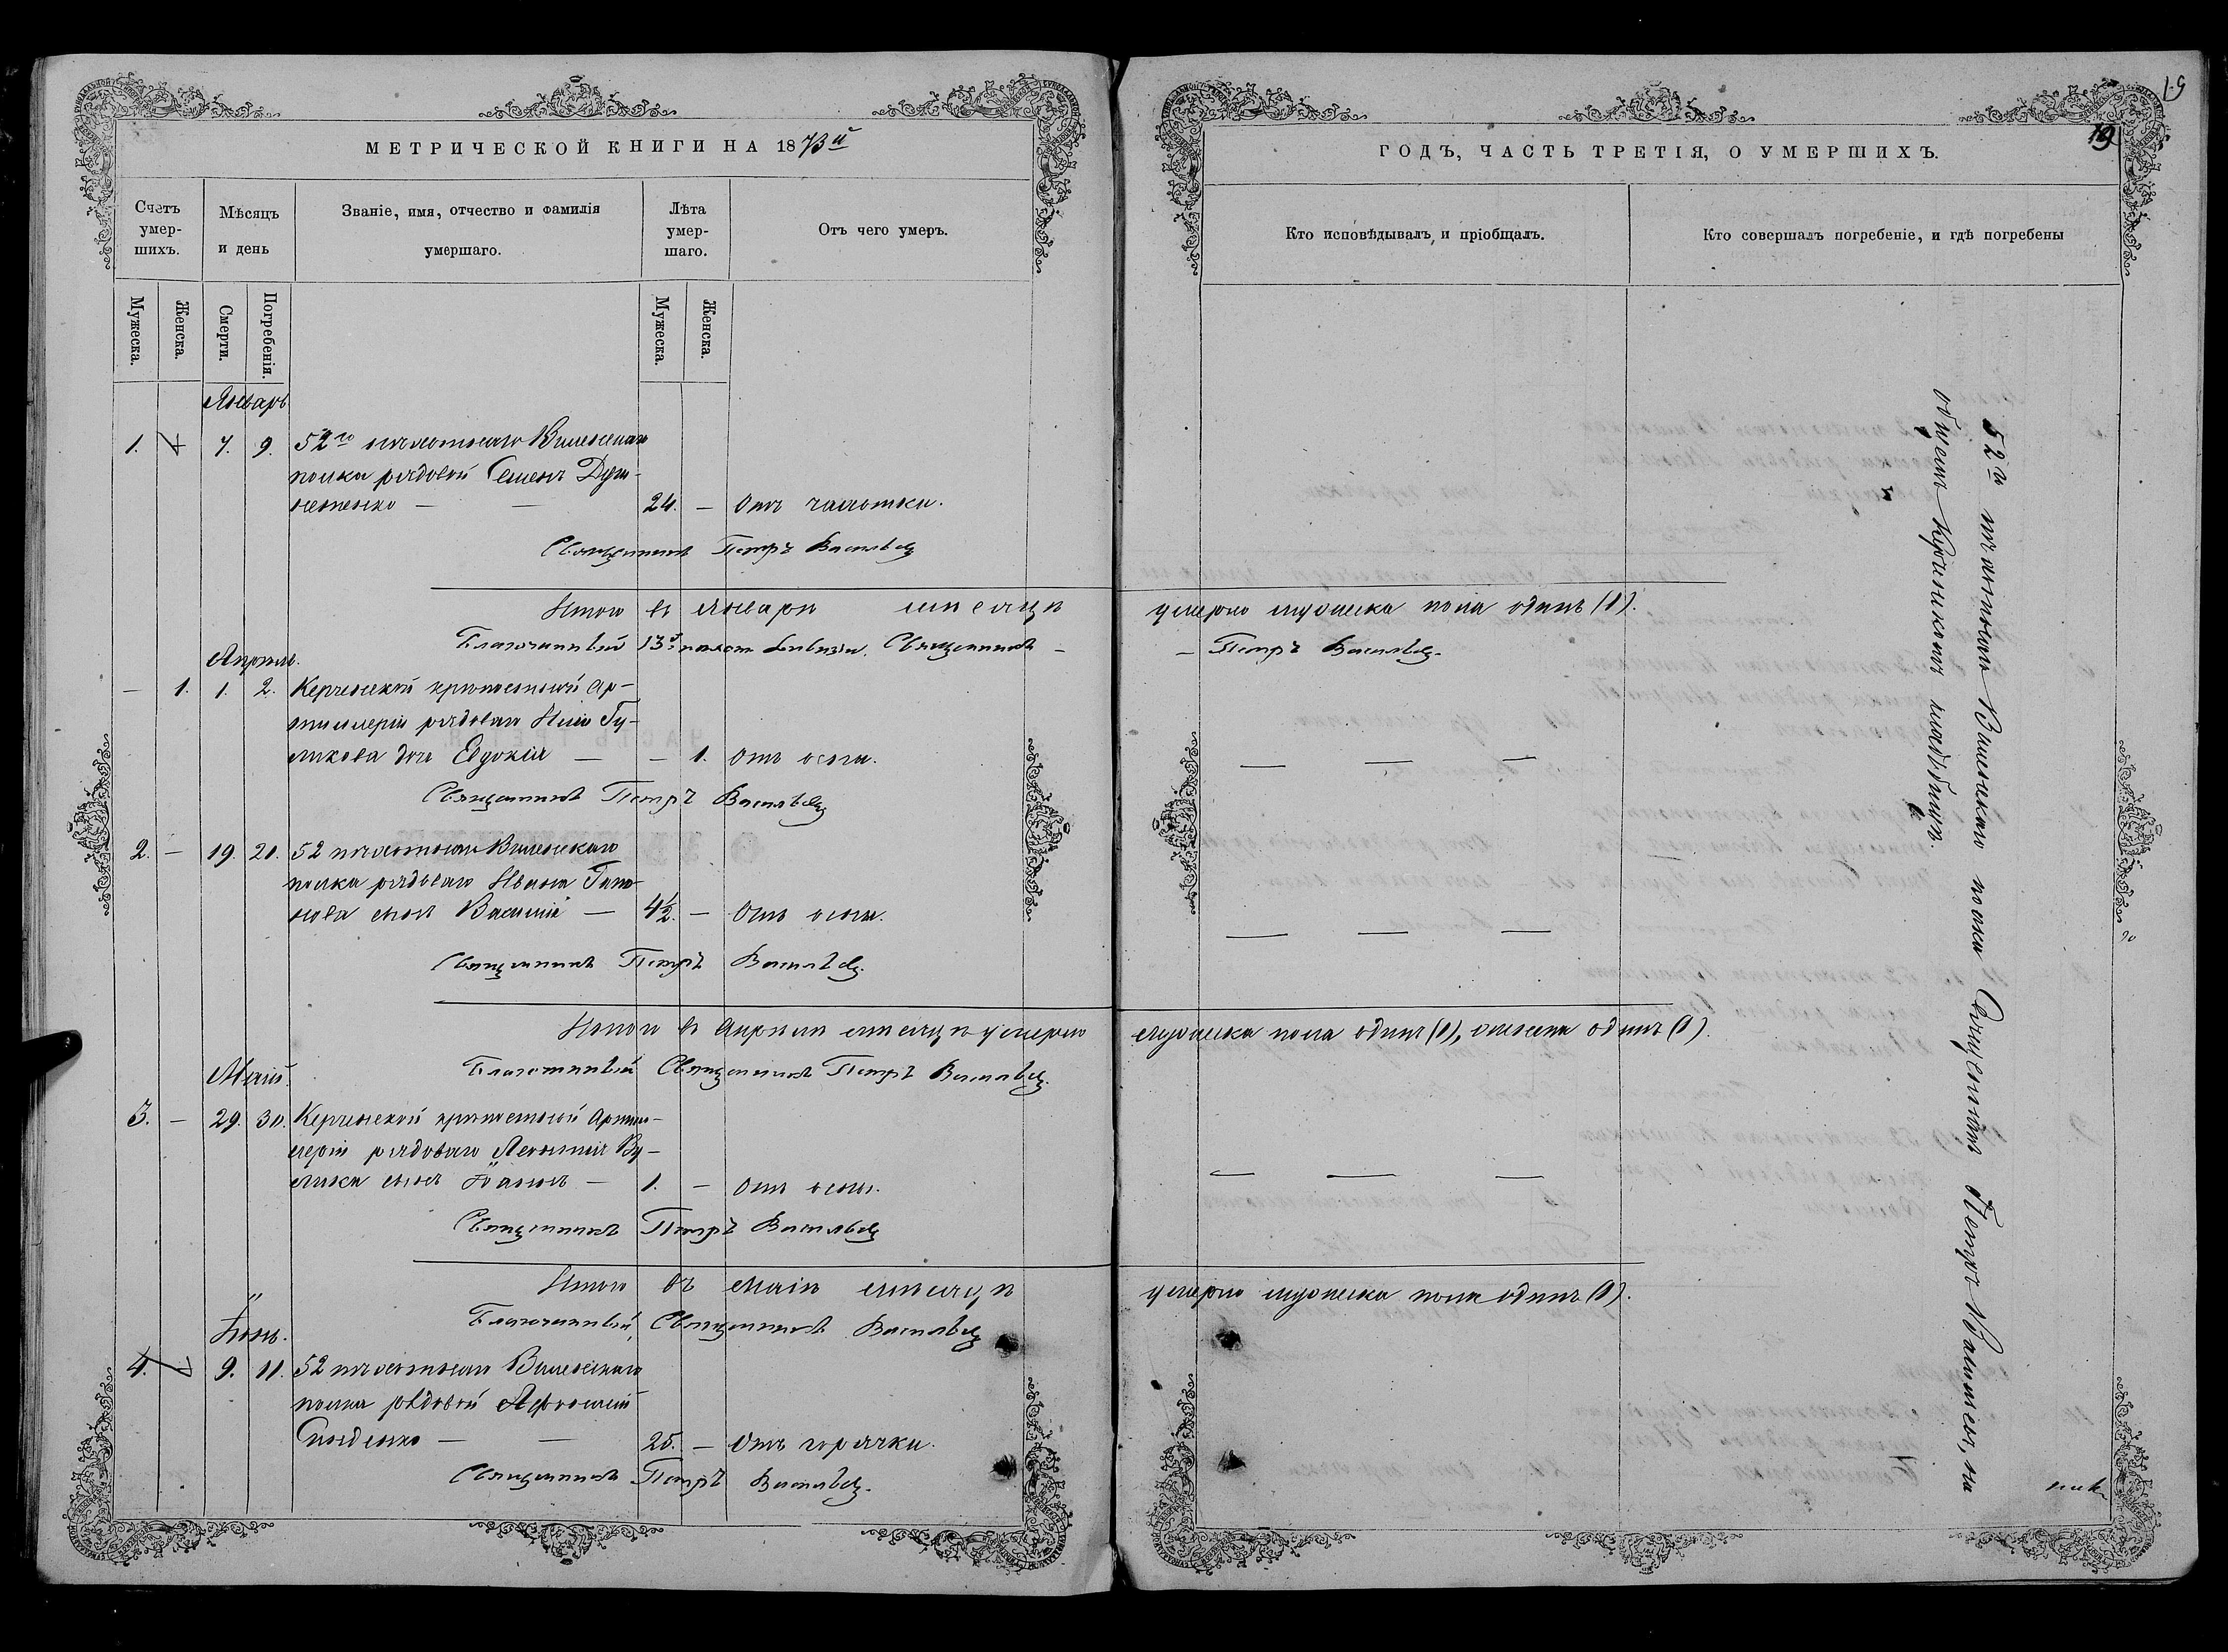 19
19
МЕТРИЧЕСКОЙ КНИГИ НА 1873й
ГОДЪ, ЧАСТЬ ТРЕТІЯ, О УМЕРШИХЪ.
Счетъ умер-шихъ.
Мѣсяцъ и день
Званіе, имя, отчество и фамилія умершаго.
Лѣта умер-шаго.
Отъ чего умеръ.
Кто исповѣдывалъ и пріобщалъ.
Кто совершалъ погребеніе, и гдѣ погребены
Мужеска.
Женска.
Смерти.
Погребенія.
Мужеска.
Женска.
Январь
1. 7. 9. 52го пѣхотнаго Виленскаго
полка рядовой Семенъ
24. — Отъ чахотки.
Священникъ Петръ Васильев
Итого въ Январѣ мѣсяцѣ умерло мужеска пола одинъ (1).
Благочинный 13й пѣхот. дивизіи, Священникъ — Петръ Васильев
Апрѣль.
— 1. 1. 2. Керченской крѣпостной Ар-
тиллеріи рядоваго Ильи Гу-
ликова дочь Евдокія — — 1. Отъ оспы.
Священникъ Петръ Васильев
2. — 19. 20. 52 пѣхотнаго Виленскаго
полка рядоваго Ивана Гапо-
нова сынъ Василій — 4½. — Отъ оспы.
Священникъ Петръ Васильев
Итого въ Апрѣлѣ мѣсяцѣ умерло мужеска пола одинъ (1), женска одинъ (1).
Благочинный Священникъ Петръ Васильев
Май.
3. — 29. 30. Керченской крѣпостной Артил-
леріи рядоваго Леонтія Ву-
сынъ Іоаннъ — 1. — Отъ оспы.
Священникъ Петръ Васильев
Итого въ Маіѣ мѣсяцѣ умерло мужеска пола одинъ (1).
Благочинный, Священникъ Васильев
Іюнь.
4. 9. 11. 52 пѣхотнаго Виленскаго
полка рядовой Афанасій
25. — Отъ горячки.
Священникъ Петръ Васильев
52го пѣхотнаго Виленскаго полка Священникъ Петръ Васильев, на
общемъ Керченскомъ кладбищѣ.